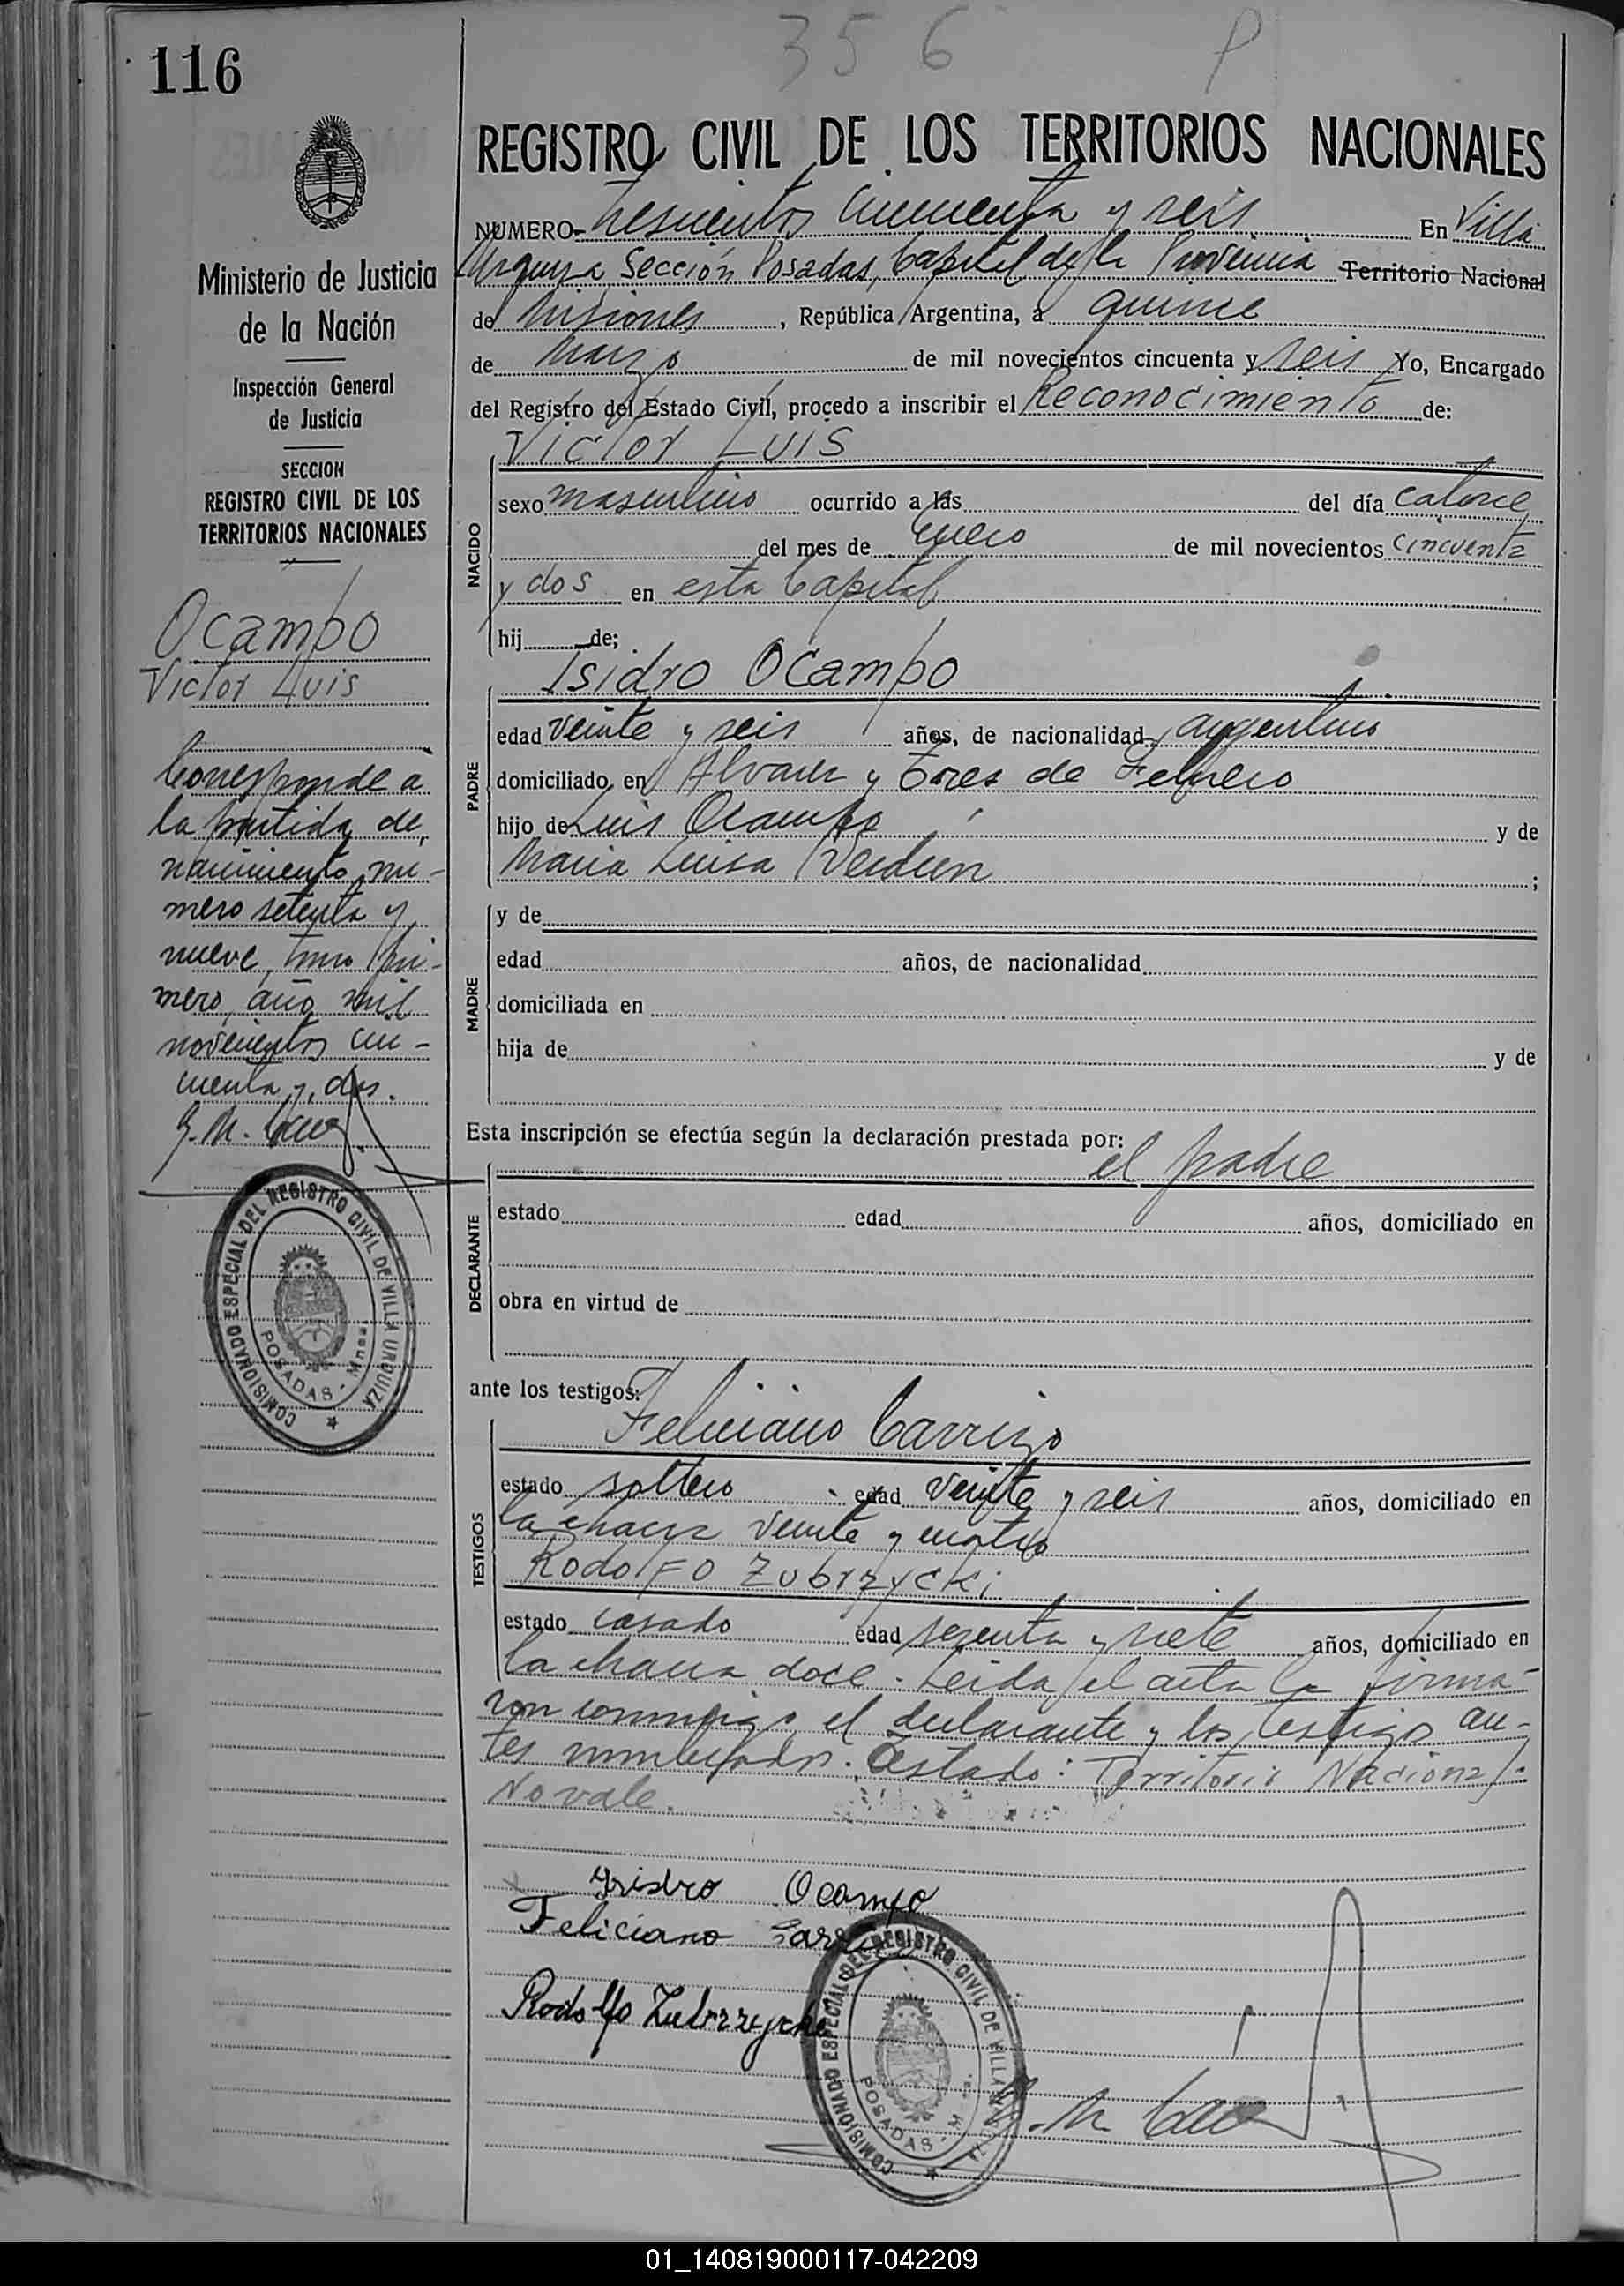 116
356 P
REGISTRO CIVIL DE LOS TERRITORIOS NACIONALES
NUMERO trescientos cincuenta y seis En Villa
Urquiza Sección Posadas, Capital de la Provincia Territorio Nacional
de Misiones, República Argentina, a quince
de Marzo de mil novecientos cincuenta y seis Yo, Encargado
del Registro del Estado Civil, procedo a inscribir el Reconocimiento de:
Ministerio de Justicia
de la Nación
Inspección General
de Justicia
SECCION
REGISTRO CIVIL DE LOS
TERRITORIOS NACIONALES
Ocampo
Victor Luis
Corresponde a
la partida de
nacimiento nu-
mero setenta y
nueve, tomo pri-
mero, año mil
novecientos cin-
cuenta y dos.
COMISIONADO ESPECIAL DEL REGISTRO CIVIL DE VILLA URQUIZA
POSADAS - Mnes.
NACIDO
Victor Luis
sexo masculino ocurrido a las del día catorce
del mes de Enero de mil novecientos cincuenta
y dos en esta Capital
hij de;
PADRE
Isidro Ocampo
edad veinte y seis años, de nacionalidad argentino
domiciliado en Alvarez y Tres de Febrero
hijo de Luis Ocampo y de
Maria Luisa Verdun ;
MADRE
y de
edad años, de nacionalidad
domiciliada en
hija de y de
Esta inscripción se efectúa según la declaración prestada por:
el padre
DECLARANTE
estado edad años, domiciliado en
obra en virtud de
ante los testigos:
TESTIGOS
Feliciano Carrizo
estado soltero edad veinte y seis años, domiciliado en
la chacra veinte y cuatro
Rodolfo Zubrzycki
estado casado edad sesenta y siete años, domiciliado en
la chacra doce. Leida el acta la firma-
ron conmigo el declarante y los testigos an-
tes nombrados. Testado: Territorio Nacional:
No vale.
Isidro Ocampo
Feliciano
Rodolfo Zubrzycki
COMISIONADO ESPECIAL DEL REGISTRO CIVIL DE VILLA
POSADAS
01_140819000117-042209